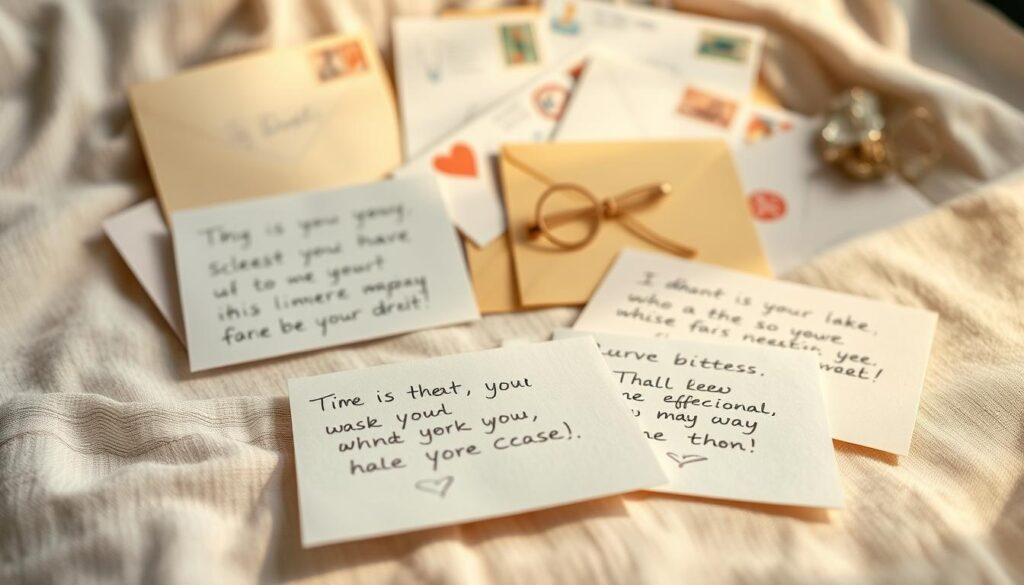 Thig is you yowy,
scleest you have
uf to me yeurt
ihis limere mapay
fane be your dreit!
I dhant is your lake,
who a the so youre
whise fars neestin yee,
meet!
urve bittess.
Thall keew
ne effecional,
may way
ne thon!
Time is theat, youe
wask youd
whnd york you,
hale yore ccase).